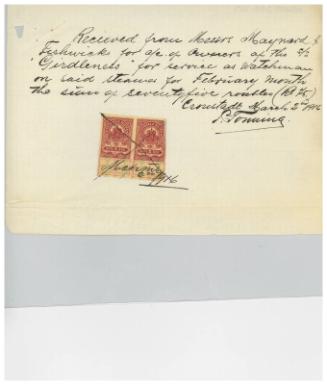 Received from Messrs Maynard &
Fishwick for a/c of Owners of the S/S
"Girdleness" for service as Watchman
on said steamer for February month
the sum of seventyfive roubles (Ro 75)
Cronstadt March 2nd 1916
March 2nd 1916